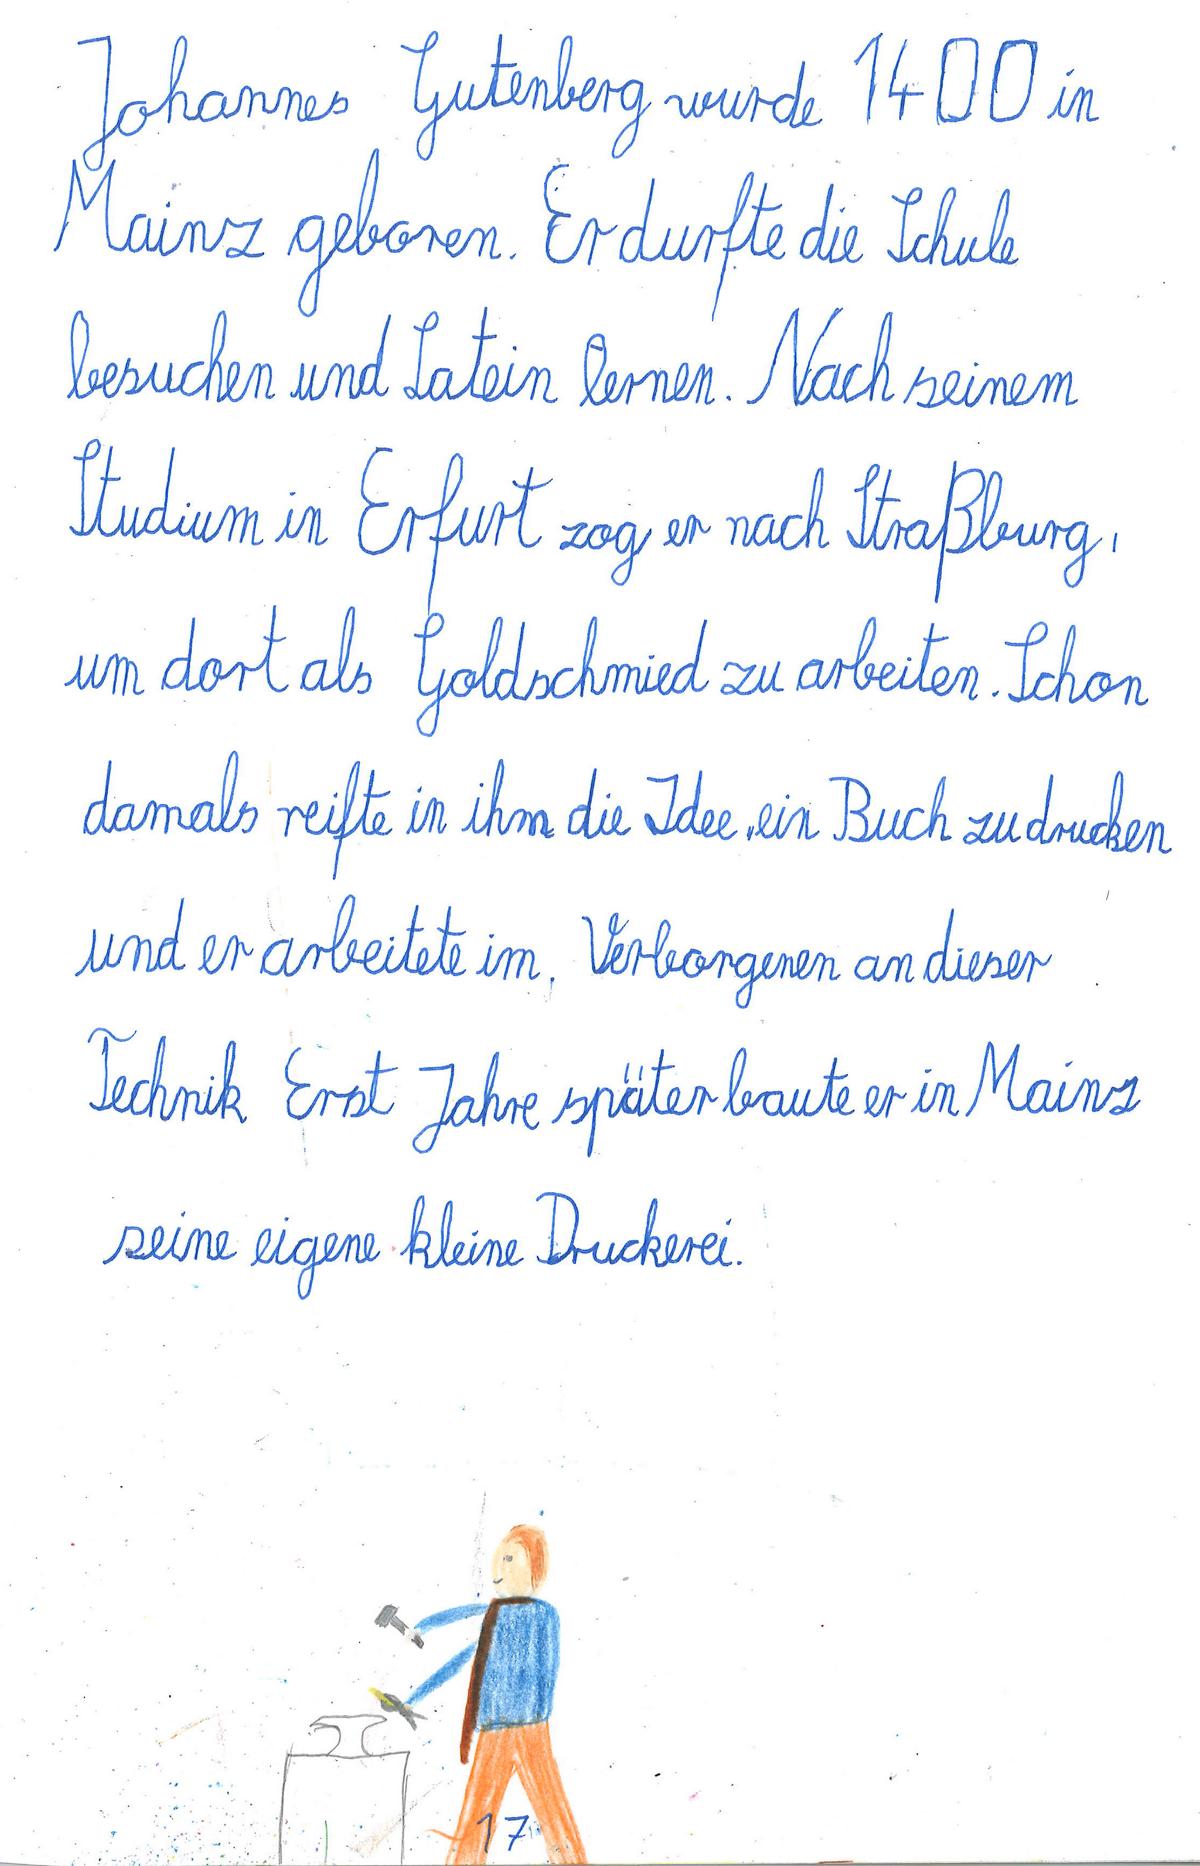 Johannes Gutenberg wurde 1400 in
Mainz geboren. Er durfte die Schule
besuchen und Latein lernen. Nach seinem
Studium in Erfurt zog er nach Straßburg,
um dort als Goldschmied zu arbeiten. Schon
damals reifte in ihm die Idee, ein Buch zu drucken
und er arbeitete im Verborgenen an dieser
Technik Erst Jahre später baute er in Mainz
seine eigene kleine Druckerei.
17